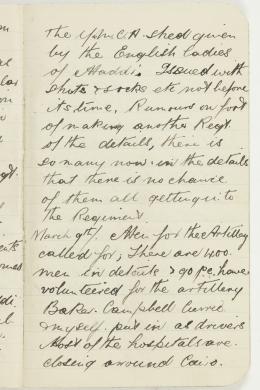 the Y.M.C.A. shed given
by the English ladies
of Maadi. Issued with
shirts & socks etc not before
its time. Rumours on foot
of making another Regt.
of the details, there is
so many now in the details
that there is no chance
of them all getting into
the Regiment.
March 9th/. Men for the Artillery
called for; There are 400
men in details & 90 pc. have
volunteered for the artillery
Baker. Campbell Currie
& myself put in as drivers
Most of the hospitals are
closing around Cairo.